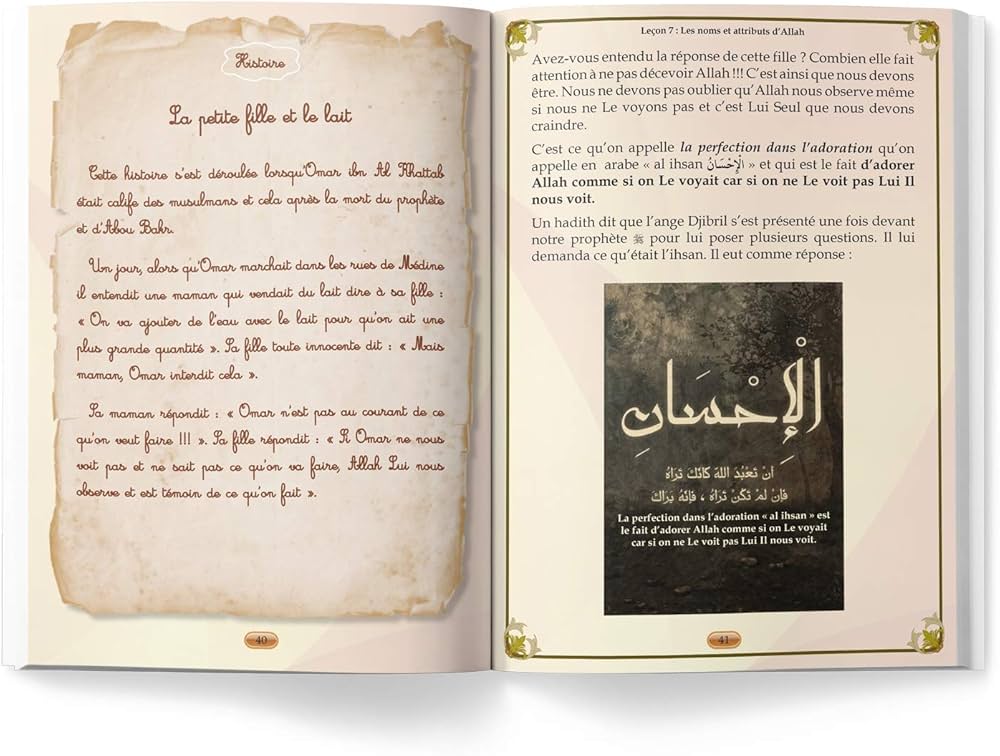 Histoire
La petite fille et le lait
Cette histoire s'est déroulée lorsqu'Omar ibn Al Khattab
était calife des musulmans et cela après la mort du prophète
et d'Abou Bakr.
Un jour, alors qu'Omar marchait dans les rues de Médine
il entendit une maman qui vendait du lait dire à sa fille :
« On va ajouter de l'eau avec le lait pour qu'on ait une
plus grande quantité ». Sa fille toute innocente dit : « Mais
maman, Omar interdit cela ».
Sa maman répondit : « Omar n'est pas au courant de ce
qu'on veut faire !!! ». Sa fille répondit : « Si Omar ne nous
voit pas et ne sait pas ce qu'on va faire, Allah Lui nous
observe et est témoin de ce qu'on fait ».
40
Leçon 7 : Les noms et attributs d'Allah
Avez-vous entendu la réponse de cette fille ? Combien elle fait
attention à ne pas décevoir Allah !!! C'est ainsi que nous devons
être. Nous ne devons pas oublier qu'Allah nous observe même
si nous ne Le voyons pas et c'est Lui Seul que nous devons
craindre.
C'est ce qu'on appelle la perfection dans l'adoration qu'on
appelle en arabe « al ihsan الْإِحْسَانُ » et qui est le fait d'adorer
Allah comme si on Le voyait car si on ne Le voit pas Lui Il
nous voit.
Un hadith dit que l'ange Djibril s'est présenté une fois devant
notre prophète ﷺ pour lui poser plusieurs questions. Il lui
demanda ce qu'était l'ihsan. Il eut comme réponse :
الْإِحْسَانِ
أَنْ تَعْبُدَ اللهَ كَأَنَّكَ تَرَاهُ
فَإِنْ لَمْ تَكُنْ تَرَاهُ ، فَإِنَّهُ يَرَاكَ
La perfection dans l'adoration « al ihsan » est
le fait d'adorer Allah comme si on Le voyait
car si on ne Le voit pas Lui Il nous voit.
41